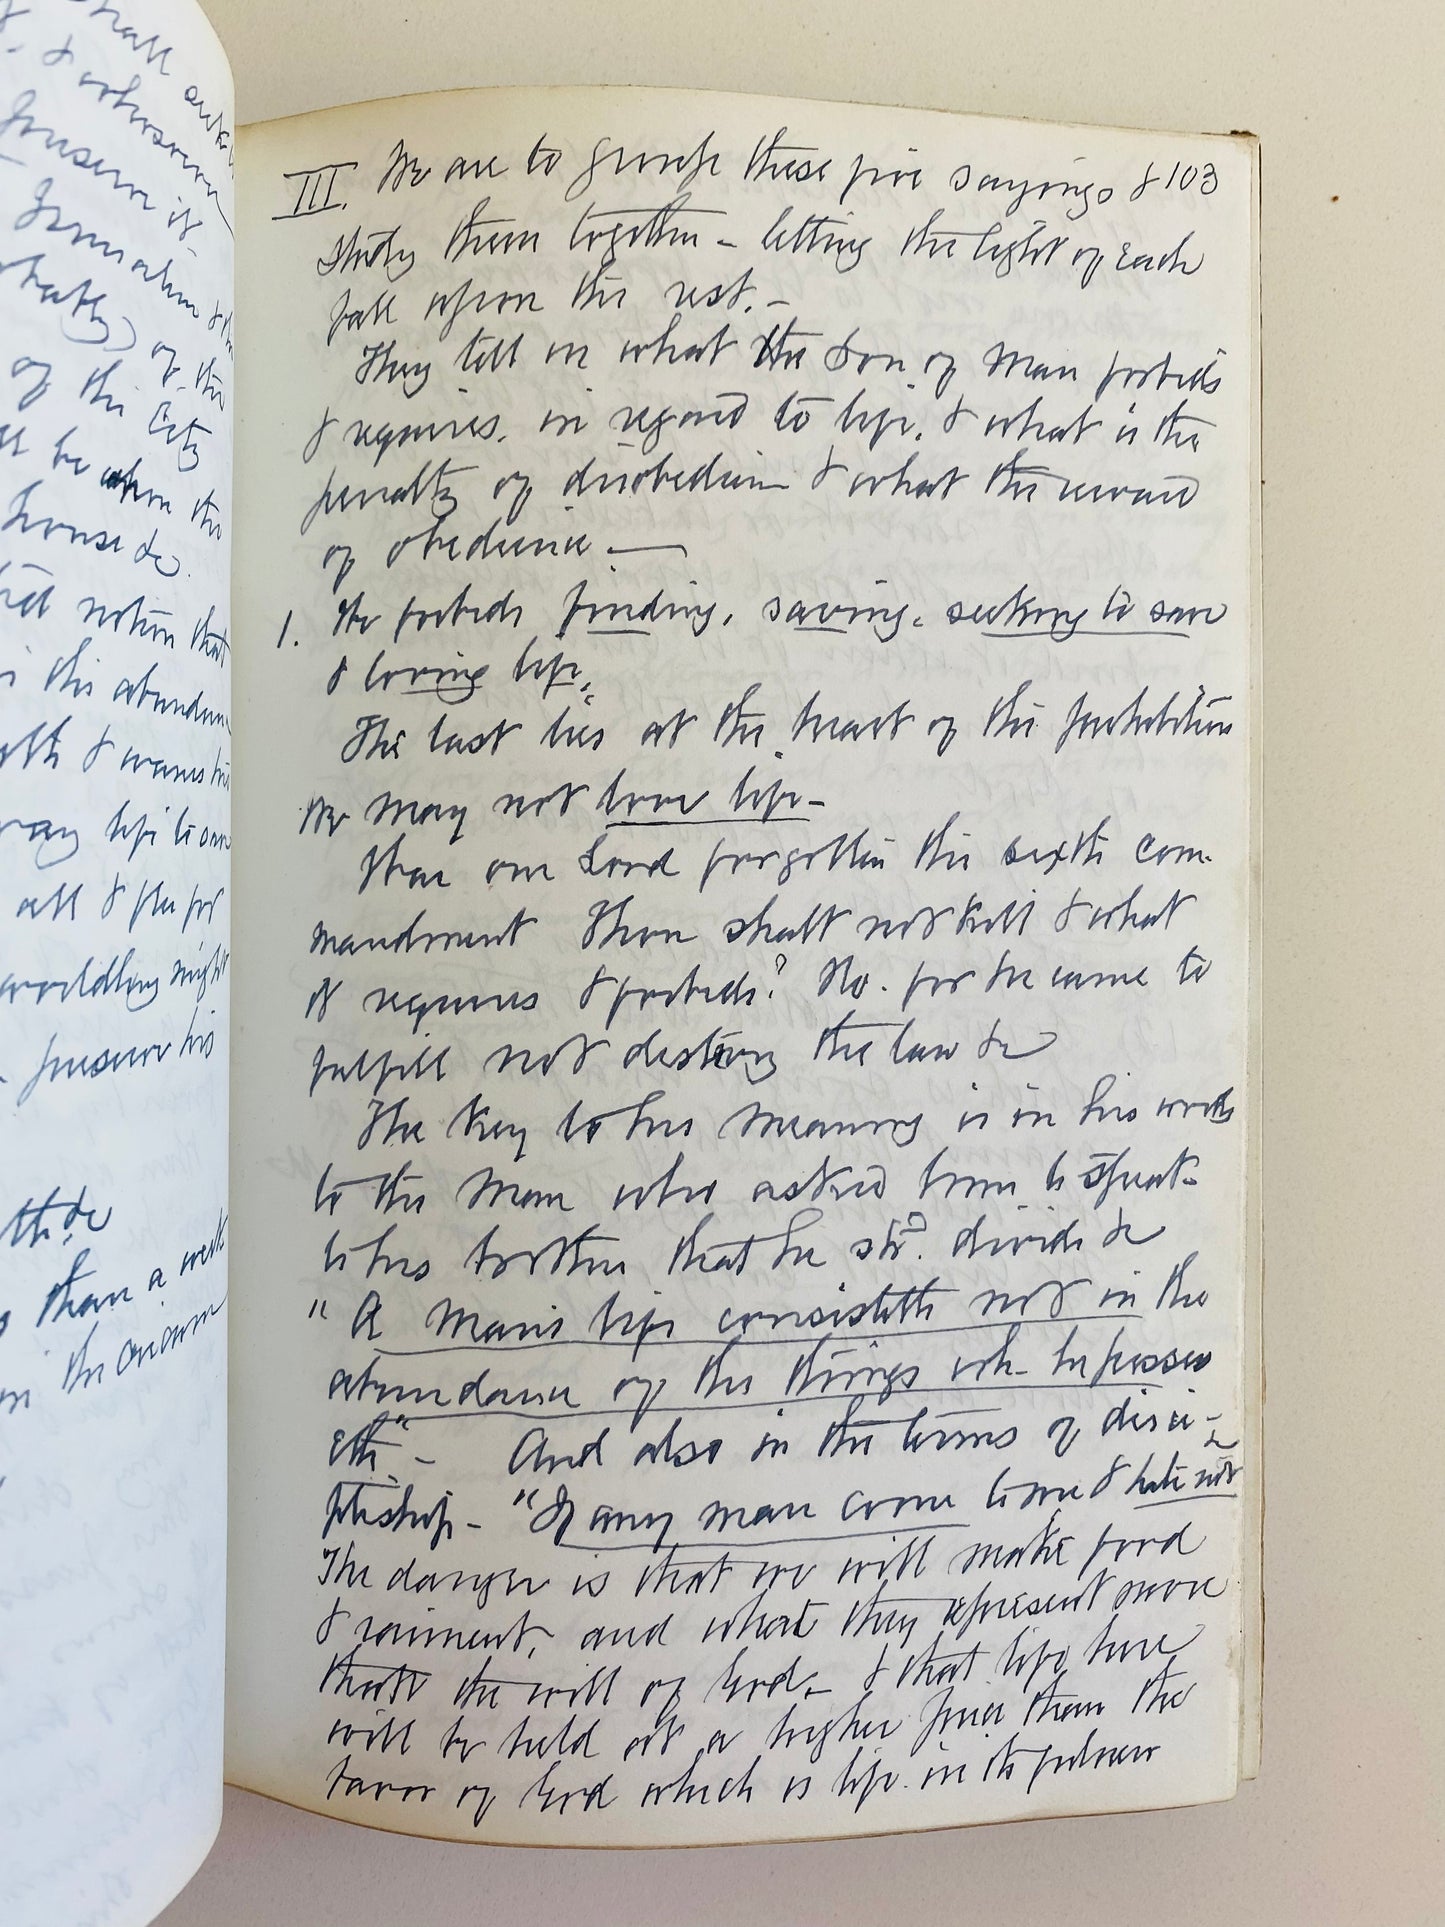 shall seek
& whosoever
preserve it -
Jerusalem & the
of the
of the City
be upon the
house &c.
notion that
this abundan
& wants his
life to save
all & flee for
worldling might
preserve his
&c
than a week
in the
III. We are to group these five sayings & 103
study them together - letting the light of each
fall upon the rest. -
They tell us what the Son of Man forbids
& requires. in regard to life, & what is the
penalty of disobedience & what the reward
of obedience. —
1. He forbids finding, saving, seeking to save
& loving life.
The last lies at the heart of the prohibition
We may not love life -
Has our Lord forgotten the sixth com-
mandment Thou shalt not kill & what
it requires & forbids? No. for he came to
fulfill not destroy the law &c
The key to his meaning is in his words
to the man who asked him to speak
to his brother that he shd. divide &c
"A man's life consisteth not in the
abundance of the things wh. he possess
eth" - And also in the terms of disci-
pleship - "If any man come to me & hate not
The danger is that we will make food
& raiment, and what they represent more
than the will of God - & that life here
will be held at a higher price than the
favor of God which is life. in its fulness